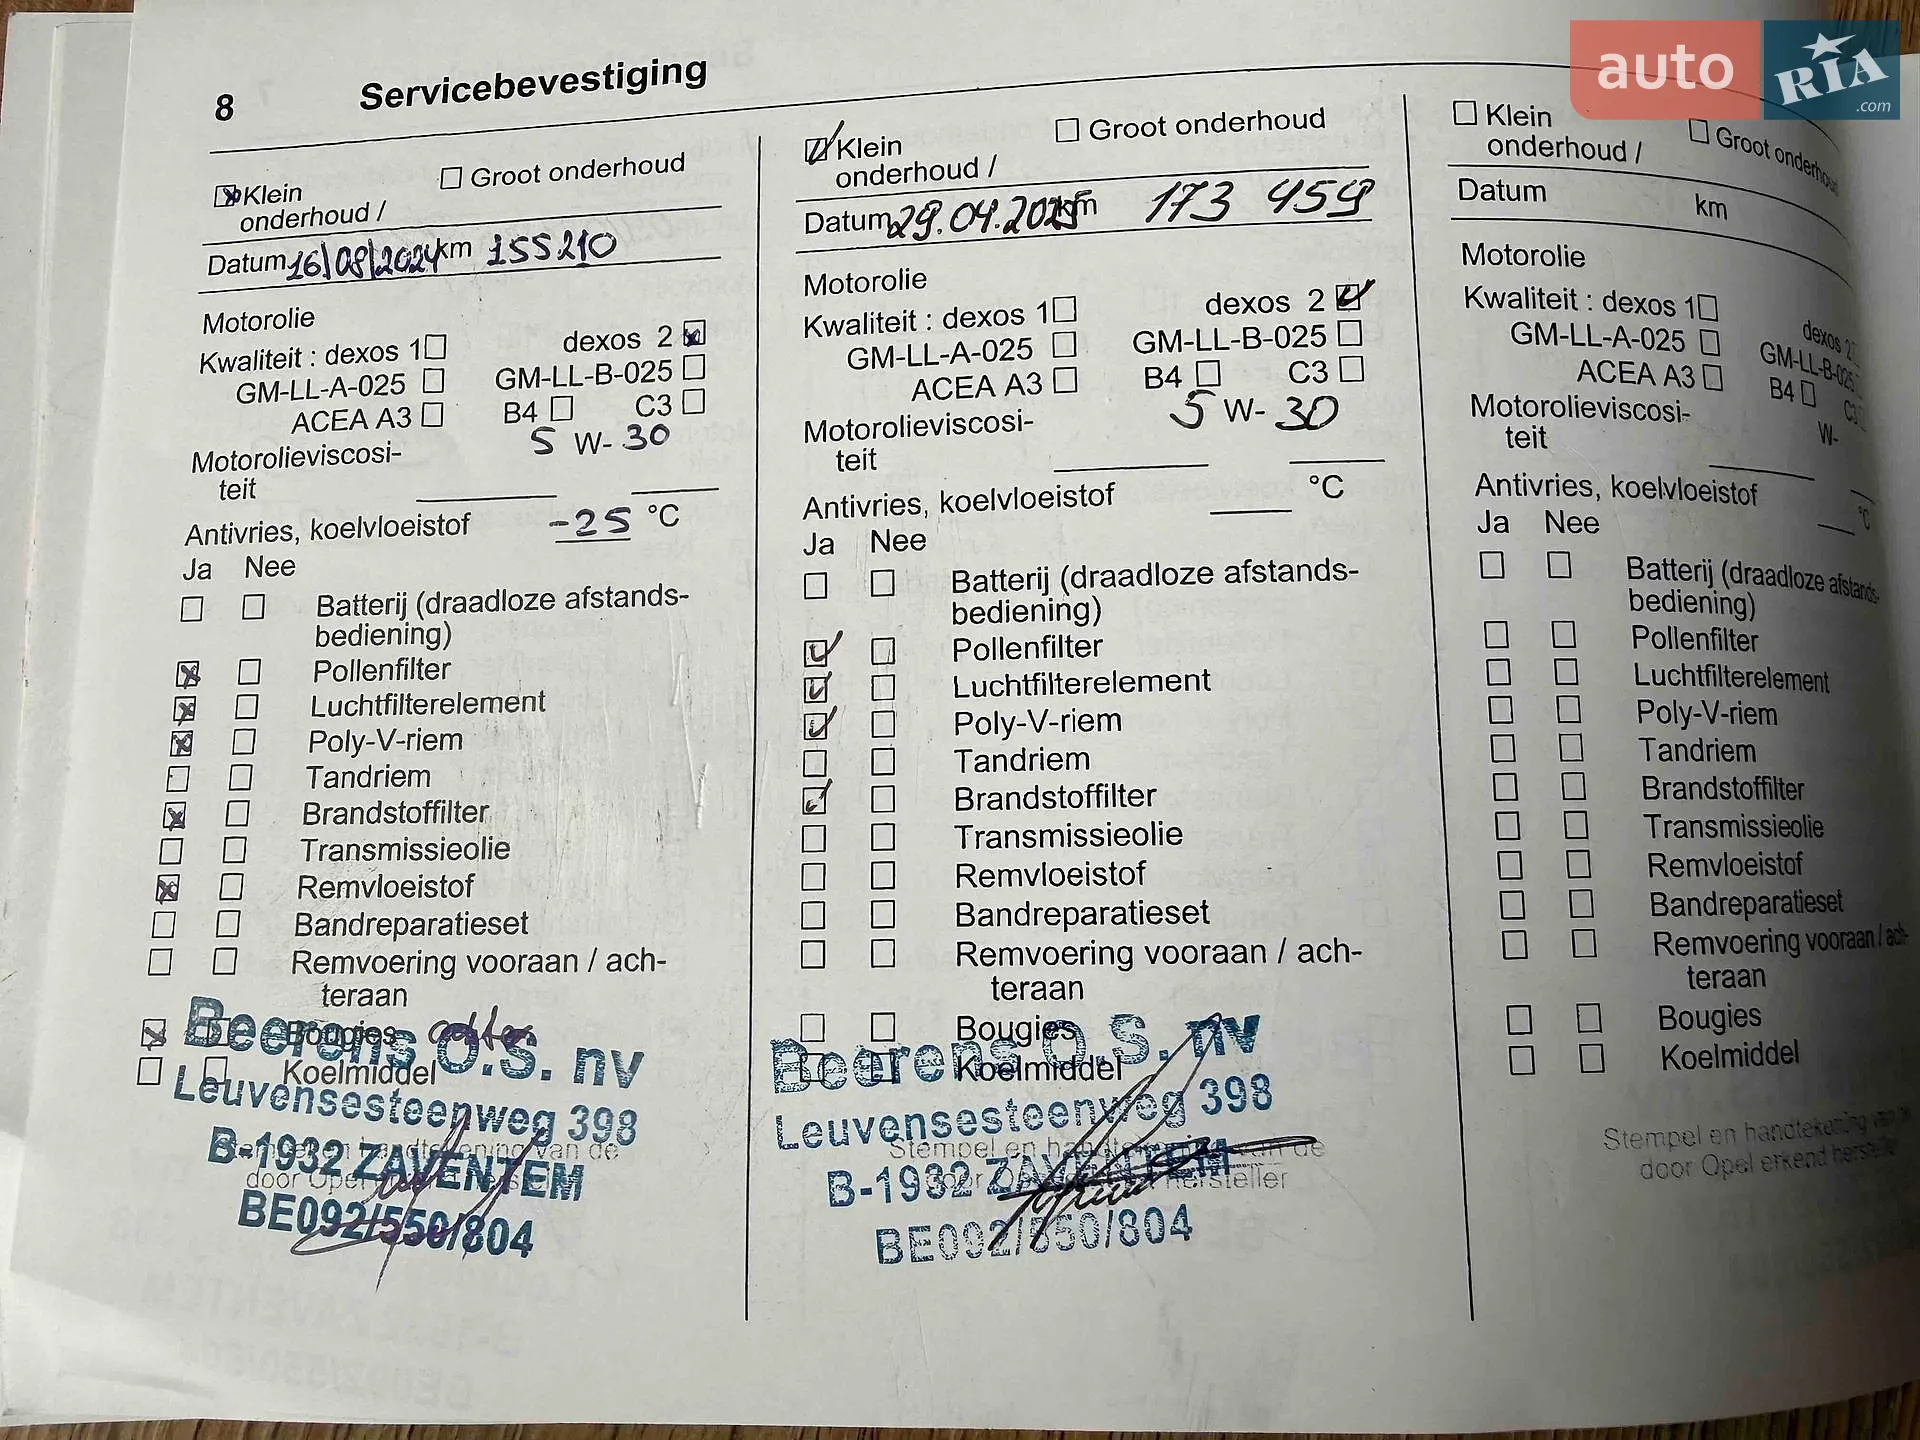 auto RIA .com
8 Servicebevestiging
Klein onderhoud /
Groot onderhoud
Datum 16/08/2024 km 155210
Motorolie
Kwaliteit : dexos 1 dexos 2
GM-LL-A-025 GM-LL-B-025
ACEA A3 B4 C3
Motorolieviscosi-
teit 5 W- 30
Antivries, koelvloeistof -25 °C
Ja Nee
Batterij (draadloze afstands-
bediening)
Pollenfilter
Luchtfilterelement
Poly-V-riem
Tandriem
Brandstoffilter
Transmissieolie
Remvloeistof
Bandreparatieset
Remvoering vooraan / ach-
teraan
Bougies
Koelmiddel
Stempel en handtekening van de
door Opel
Beerens O.S. nv
Leuvensesteenweg 398
B-1932 ZAVENTEM
BE092/550/804
Klein onderhoud /
Groot onderhoud
Datum 29.04.2025 km 173 459
Motorolie
Kwaliteit : dexos 1 dexos 2
GM-LL-A-025 GM-LL-B-025
ACEA A3 B4 C3
Motorolieviscosi-
teit 5 W- 30
Antivries, koelvloeistof °C
Ja Nee
Batterij (draadloze afstands-
bediening)
Pollenfilter
Luchtfilterelement
Poly-V-riem
Tandriem
Brandstoffilter
Transmissieolie
Remvloeistof
Bandreparatieset
Remvoering vooraan / ach-
teraan
Bougies
Koelmiddel
Stempel en handtekening van de
door hersteller
Beerens O.S. nv
Leuvensesteenweg 398
B-1932 ZAVENTEM
BE092/550/804
Klein onderhoud /
Groot onderhoud
Datum km
Motorolie
Kwaliteit : dexos 1 dexos 2
GM-LL-A-025 GM-LL-B-025
ACEA A3 B4 C3
Motorolieviscosi-
teit W-
Antivries, koelvloeistof °C
Ja Nee
Batterij (draadloze afstands-
bediening)
Pollenfilter
Luchtfilterelement
Poly-V-riem
Tandriem
Brandstoffilter
Transmissieolie
Remvloeistof
Bandreparatieset
Remvoering vooraan / ach-
teraan
Bougies
Koelmiddel
Stempel en handtekening van de
door Opel erkend hersteller